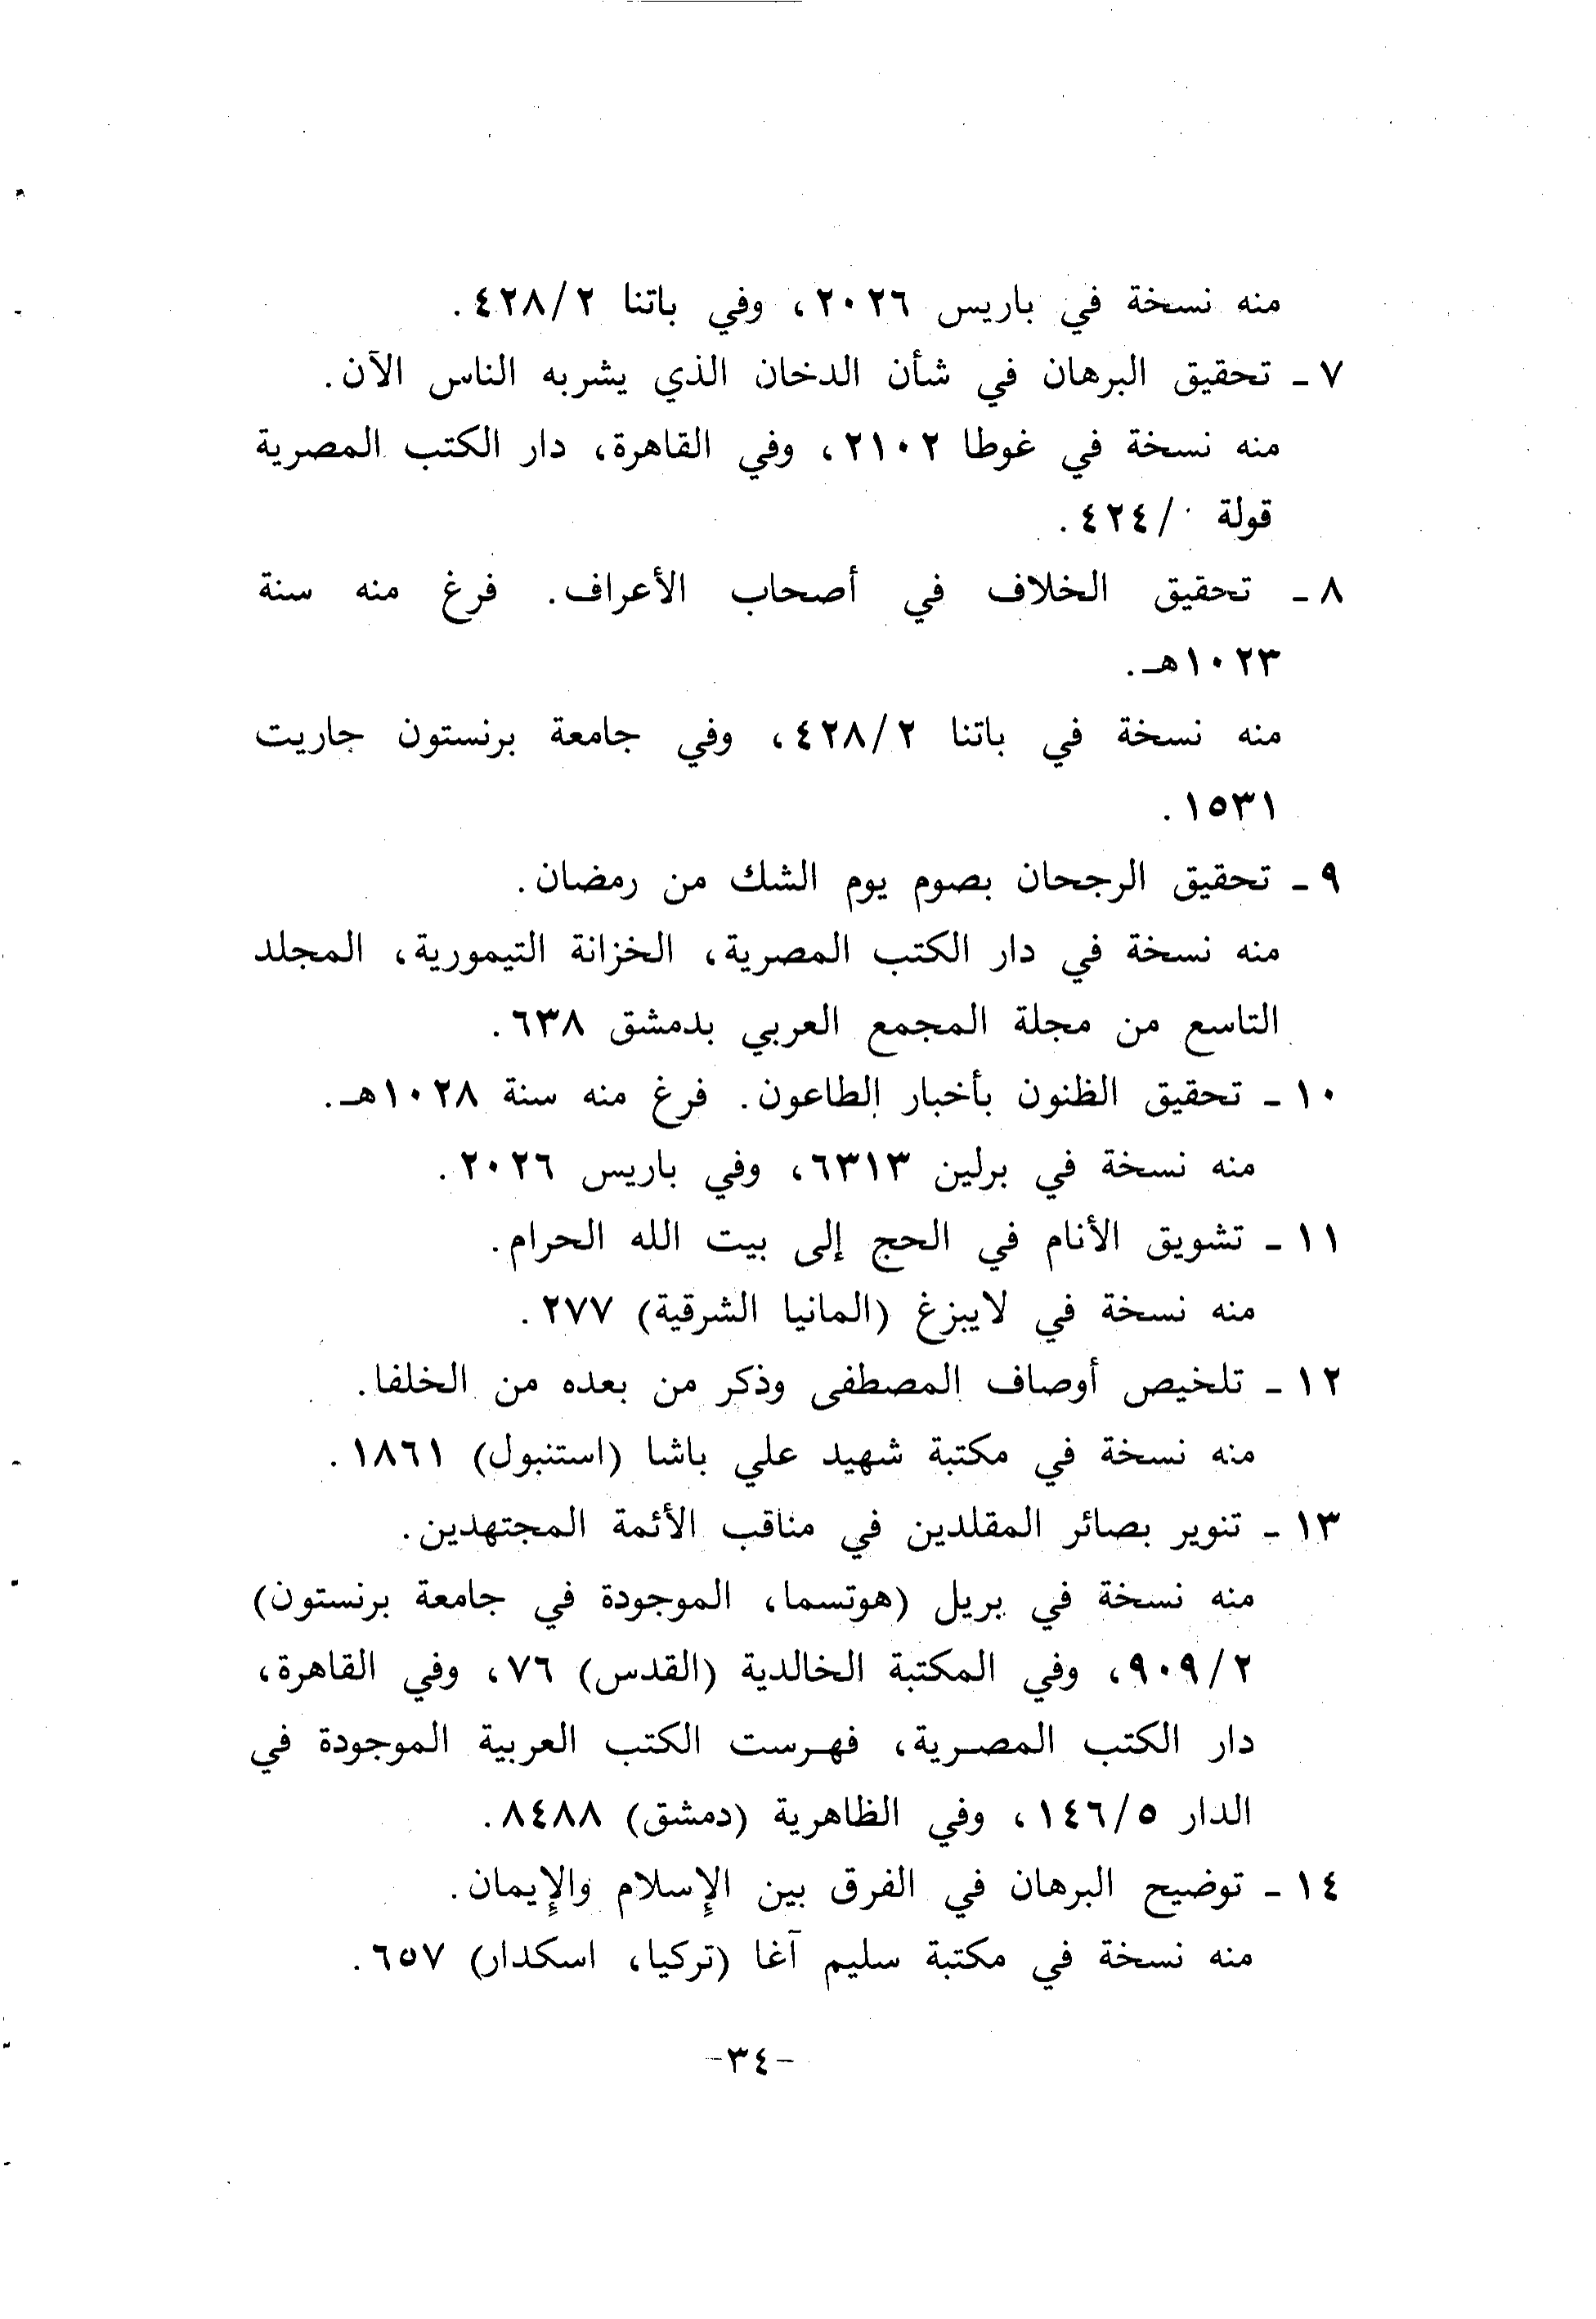 منه نسخة في باريس ٢٠٢٦، وفي باتنا ٤٢٨/٢.
٧ - تحقيق البرهان في شأن الدخان الذي يشربه الناس الآن.
منه نسخة في غوطا ٢١٠٢، وفي القاهرة، دار الكتب المصرية
قولة ٠/٤٢٤.
٨ - تحقيق الخلاف في أصحاب الأعراف. فرغ منه سنة
١٠٢٣هـ.
منه نسخة في باتنا ٤٢٨/٢، وفي جامعة برنستون جاريت
١٥٣١.
٩ - تحقيق الرجحان بصوم يوم الشك من رمضان.
منه نسخة في دار الكتب المصرية، الخزانة التيمورية، المجلد
التاسع من مجلة المجمع العربي بدمشق ٦٣٨.
١٠ - تحقيق الظنون بأخبار الطاعون. فرغ منه سنة ١٠٢٨هـ.
منه نسخة في برلين ٦٣١٣، وفي باريس ٢٠٢٦.
١١ - تشويق الأنام في الحج إلى بيت الله الحرام.
منه نسخة في لايبزغ (المانيا الشرقية) ٢٧٧.
١٢ - تلخيص أوصاف المصطفى وذكر من بعده من الخلفا.
منه نسخة في مكتبة شهيد علي باشا (استنبول) ١٨٦١.
١٣ - تنوير بصائر المقلدين في مناقب الأئمة المجتهدين.
منه نسخة في بريل (هوتسما، الموجودة في جامعة برنستون)
٩٠٩/٢، وفي المكتبة الخالدية (القدس) ٧٦، وفي القاهرة،
دار الكتب المصرية، فهرست الكتب العربية الموجودة في
الدار ١٤٦/٥، وفي الظاهرية (دمشق) ٨٤٨٨.
١٤ - توضيح البرهان في الفرق بين الإسلام والإيمان.
منه نسخة في مكتبة سليم آغا (تركيا، اسكدار) ٦٥٧.
-٣٤-